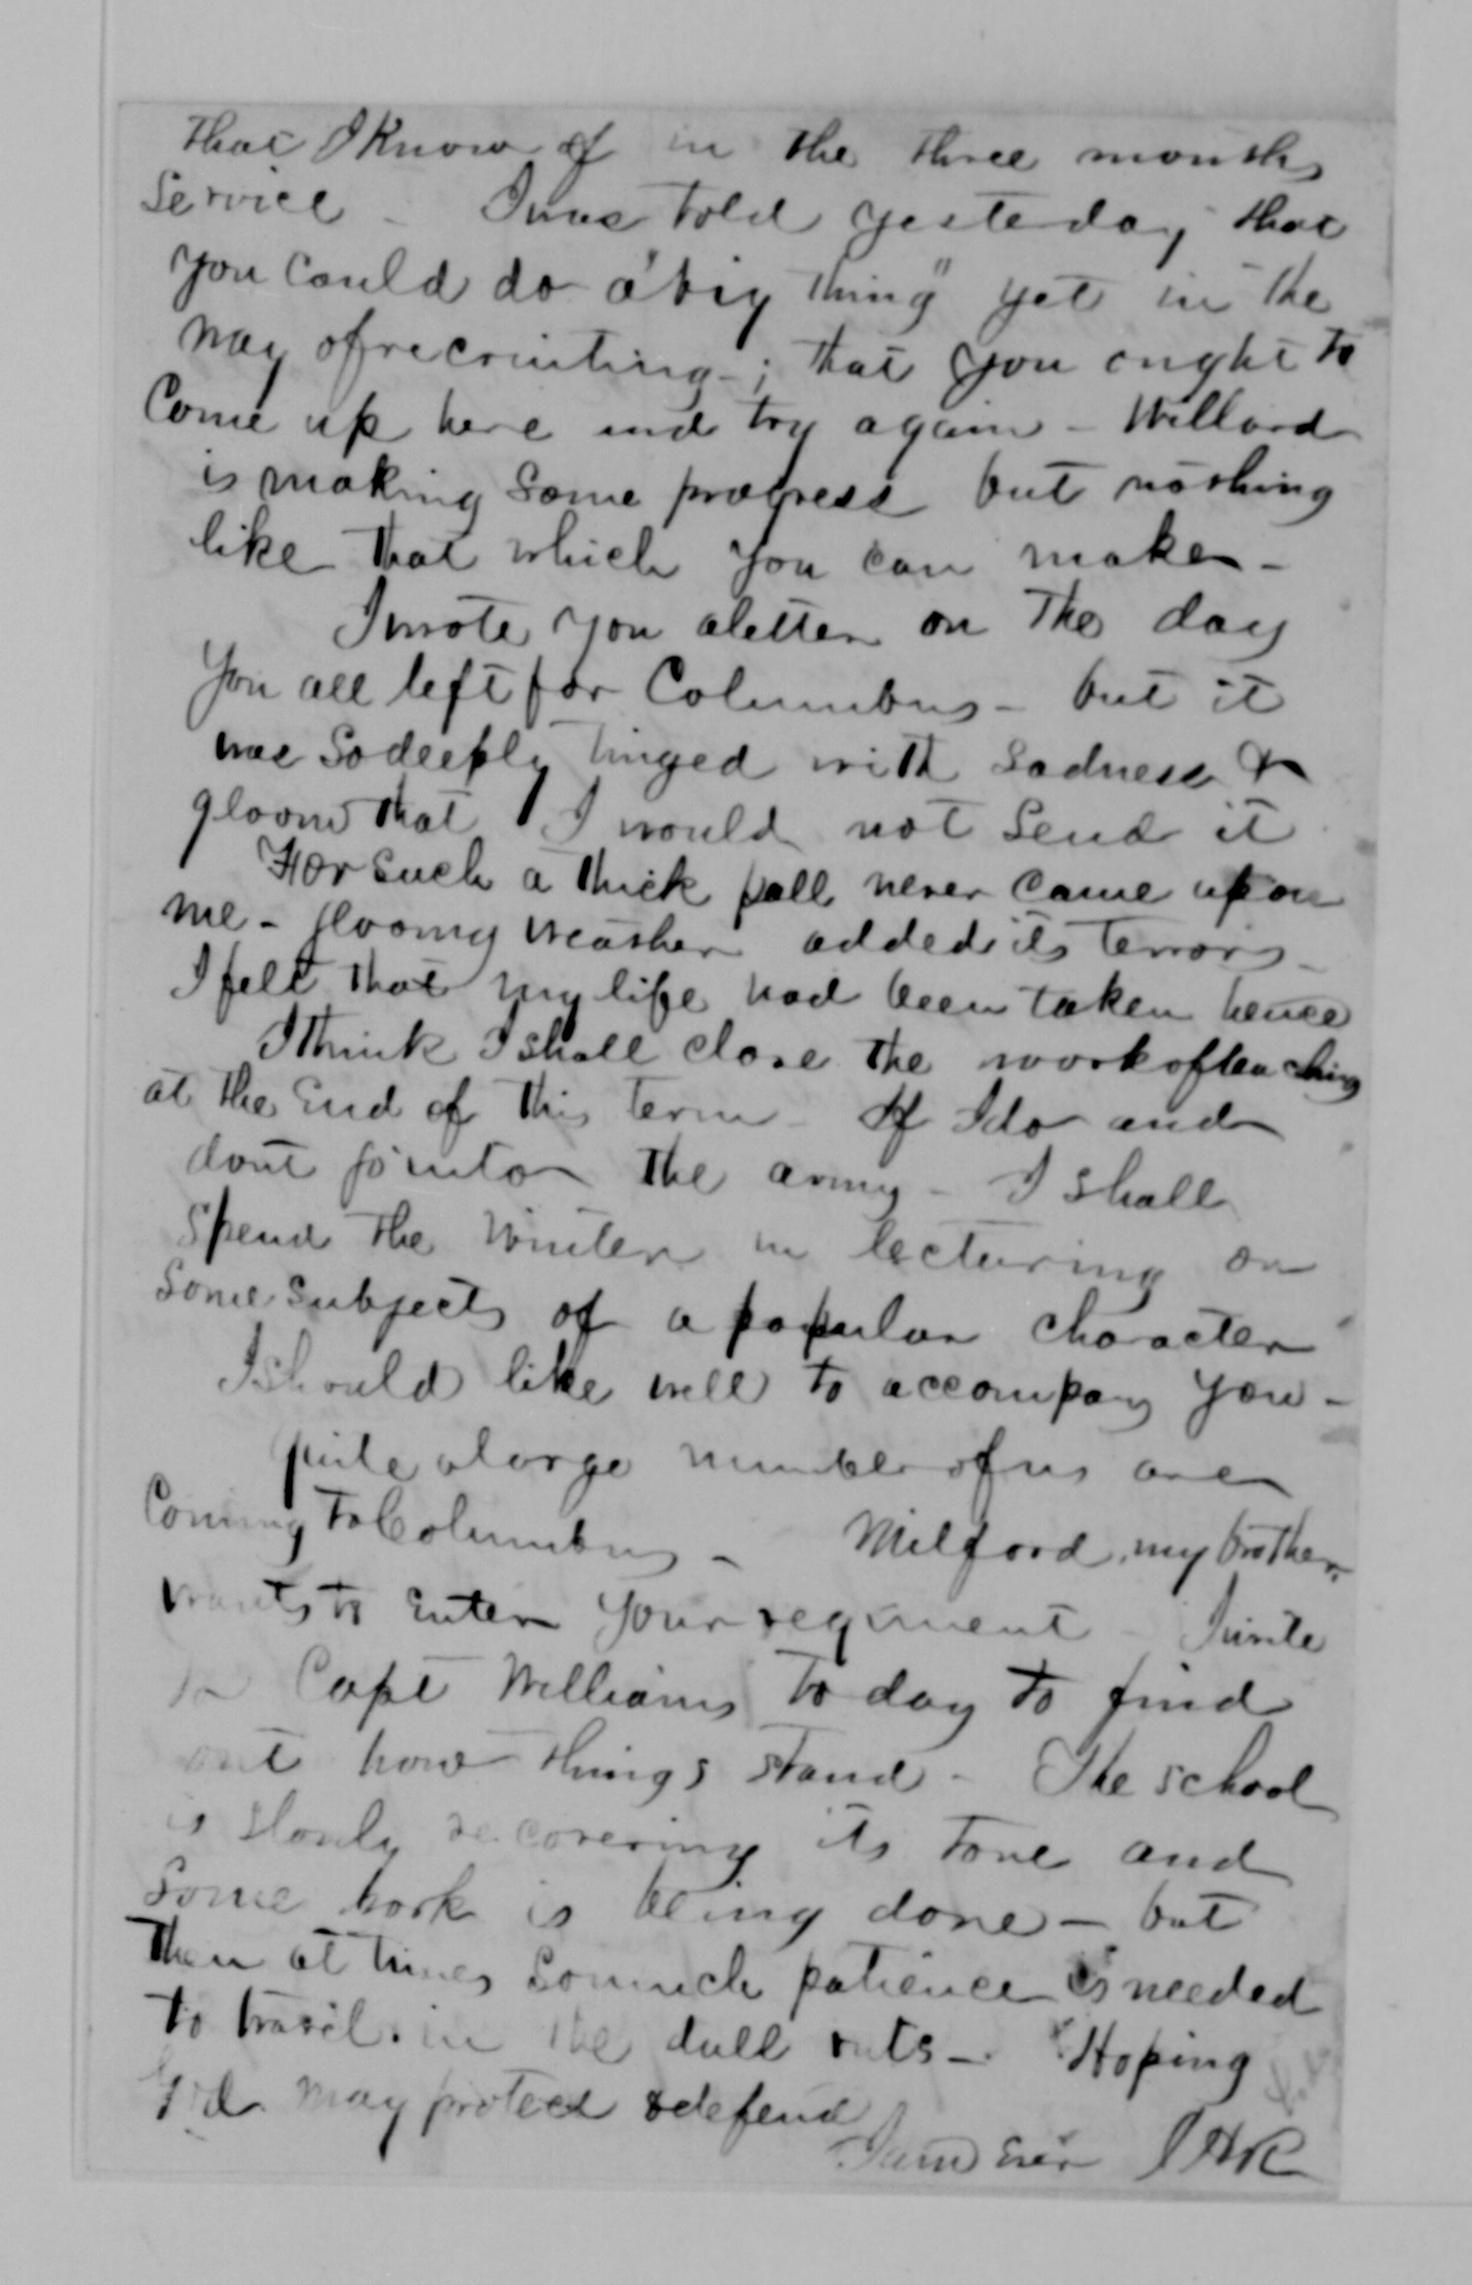 that I know of in the three months
service - I was told yesterday that
you could do a "big thing" yet in the
way of recruiting - ; that you ought to
come up here and try again - Willard
is making some progress but nothing
like that which you can make -
I wrote you a letter on the day
you all left for Columbus - but it
was so deeply tinged with sadness &
gloom that I would not send it
For such a thick pall never came upon
me - gloomy weather added its terrors -
I felt that my life had been taken hence
I think I shall close the work of teaching
at the End of this term - If I do and
dont go into the army - I shall
spend the winter in lecturing on
some subjects of a popular character
I should like well to accompany you -
quite a large number of us are
coming to Columbus - Milford, my brother,
wants to enter your regiment - I write
to Capt Williams to day to find
out how things stand - The school
is slowly recovering its tone and
some work is being done - but
then at times so much patience is needed
to travel in the dull ruts - Hoping
God may protect & defend
I am ever J H R